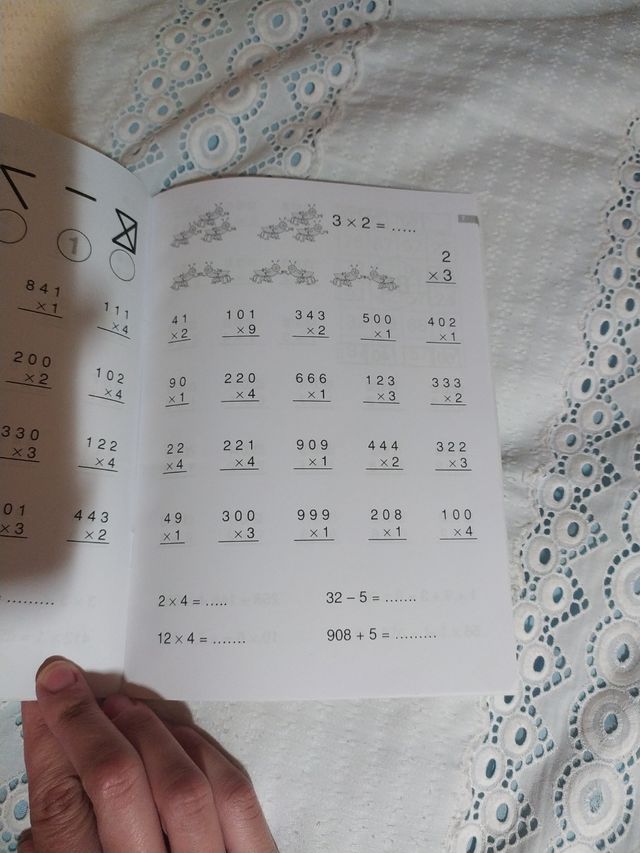 1
841 111
×1 ×4
200 102
×2 ×4
330 122
×3 ×4
01 443
×3 ×2
.........
3 × 2 = .....
2
×3
41 101 343 500 402
×2 ×9 ×2 ×1 ×1
90 220 666 123 333
×1 ×4 ×1 ×3 ×2
22 221 909 444 322
×4 ×4 ×1 ×2 ×3
49 300 999 208 100
×1 ×3 ×1 ×1 ×4
2 × 4 = ..... 32 – 5 = .......
12 × 4 = ....... 908 + 5 = .........